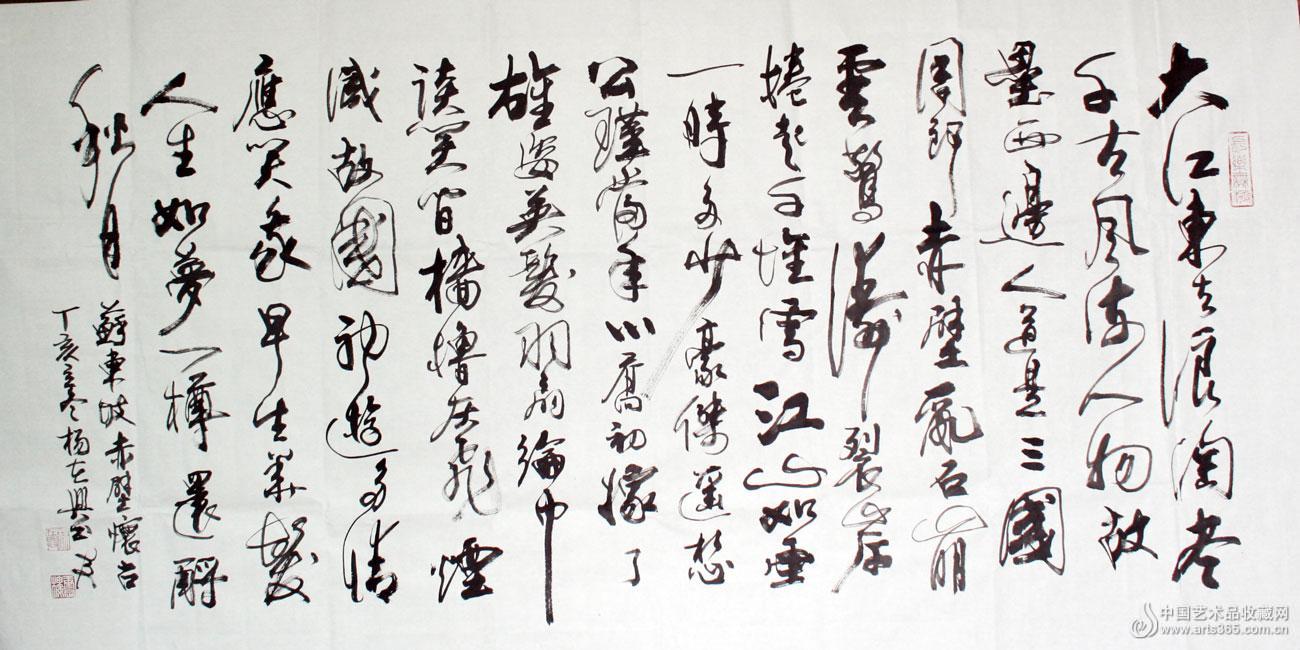 大江東去浪淘尽
千古風流人物故
壘西邊人道是三國
周郎赤壁乱石崩
雲驚濤裂岸
捲起千堆雪江山如畫
一時多少豪傑遥想
公瑾當年小喬初嫁了
雄姿英發羽扇綸巾
談笑間檣櫓灰飛煙
滅故國神遊多情
應笑我早生華髮
人生如夢一樽還酹
月
蘇東坡赤壁懷古
丁亥冬楊在興書
中国艺术品收藏网
www.arts365.com.cn